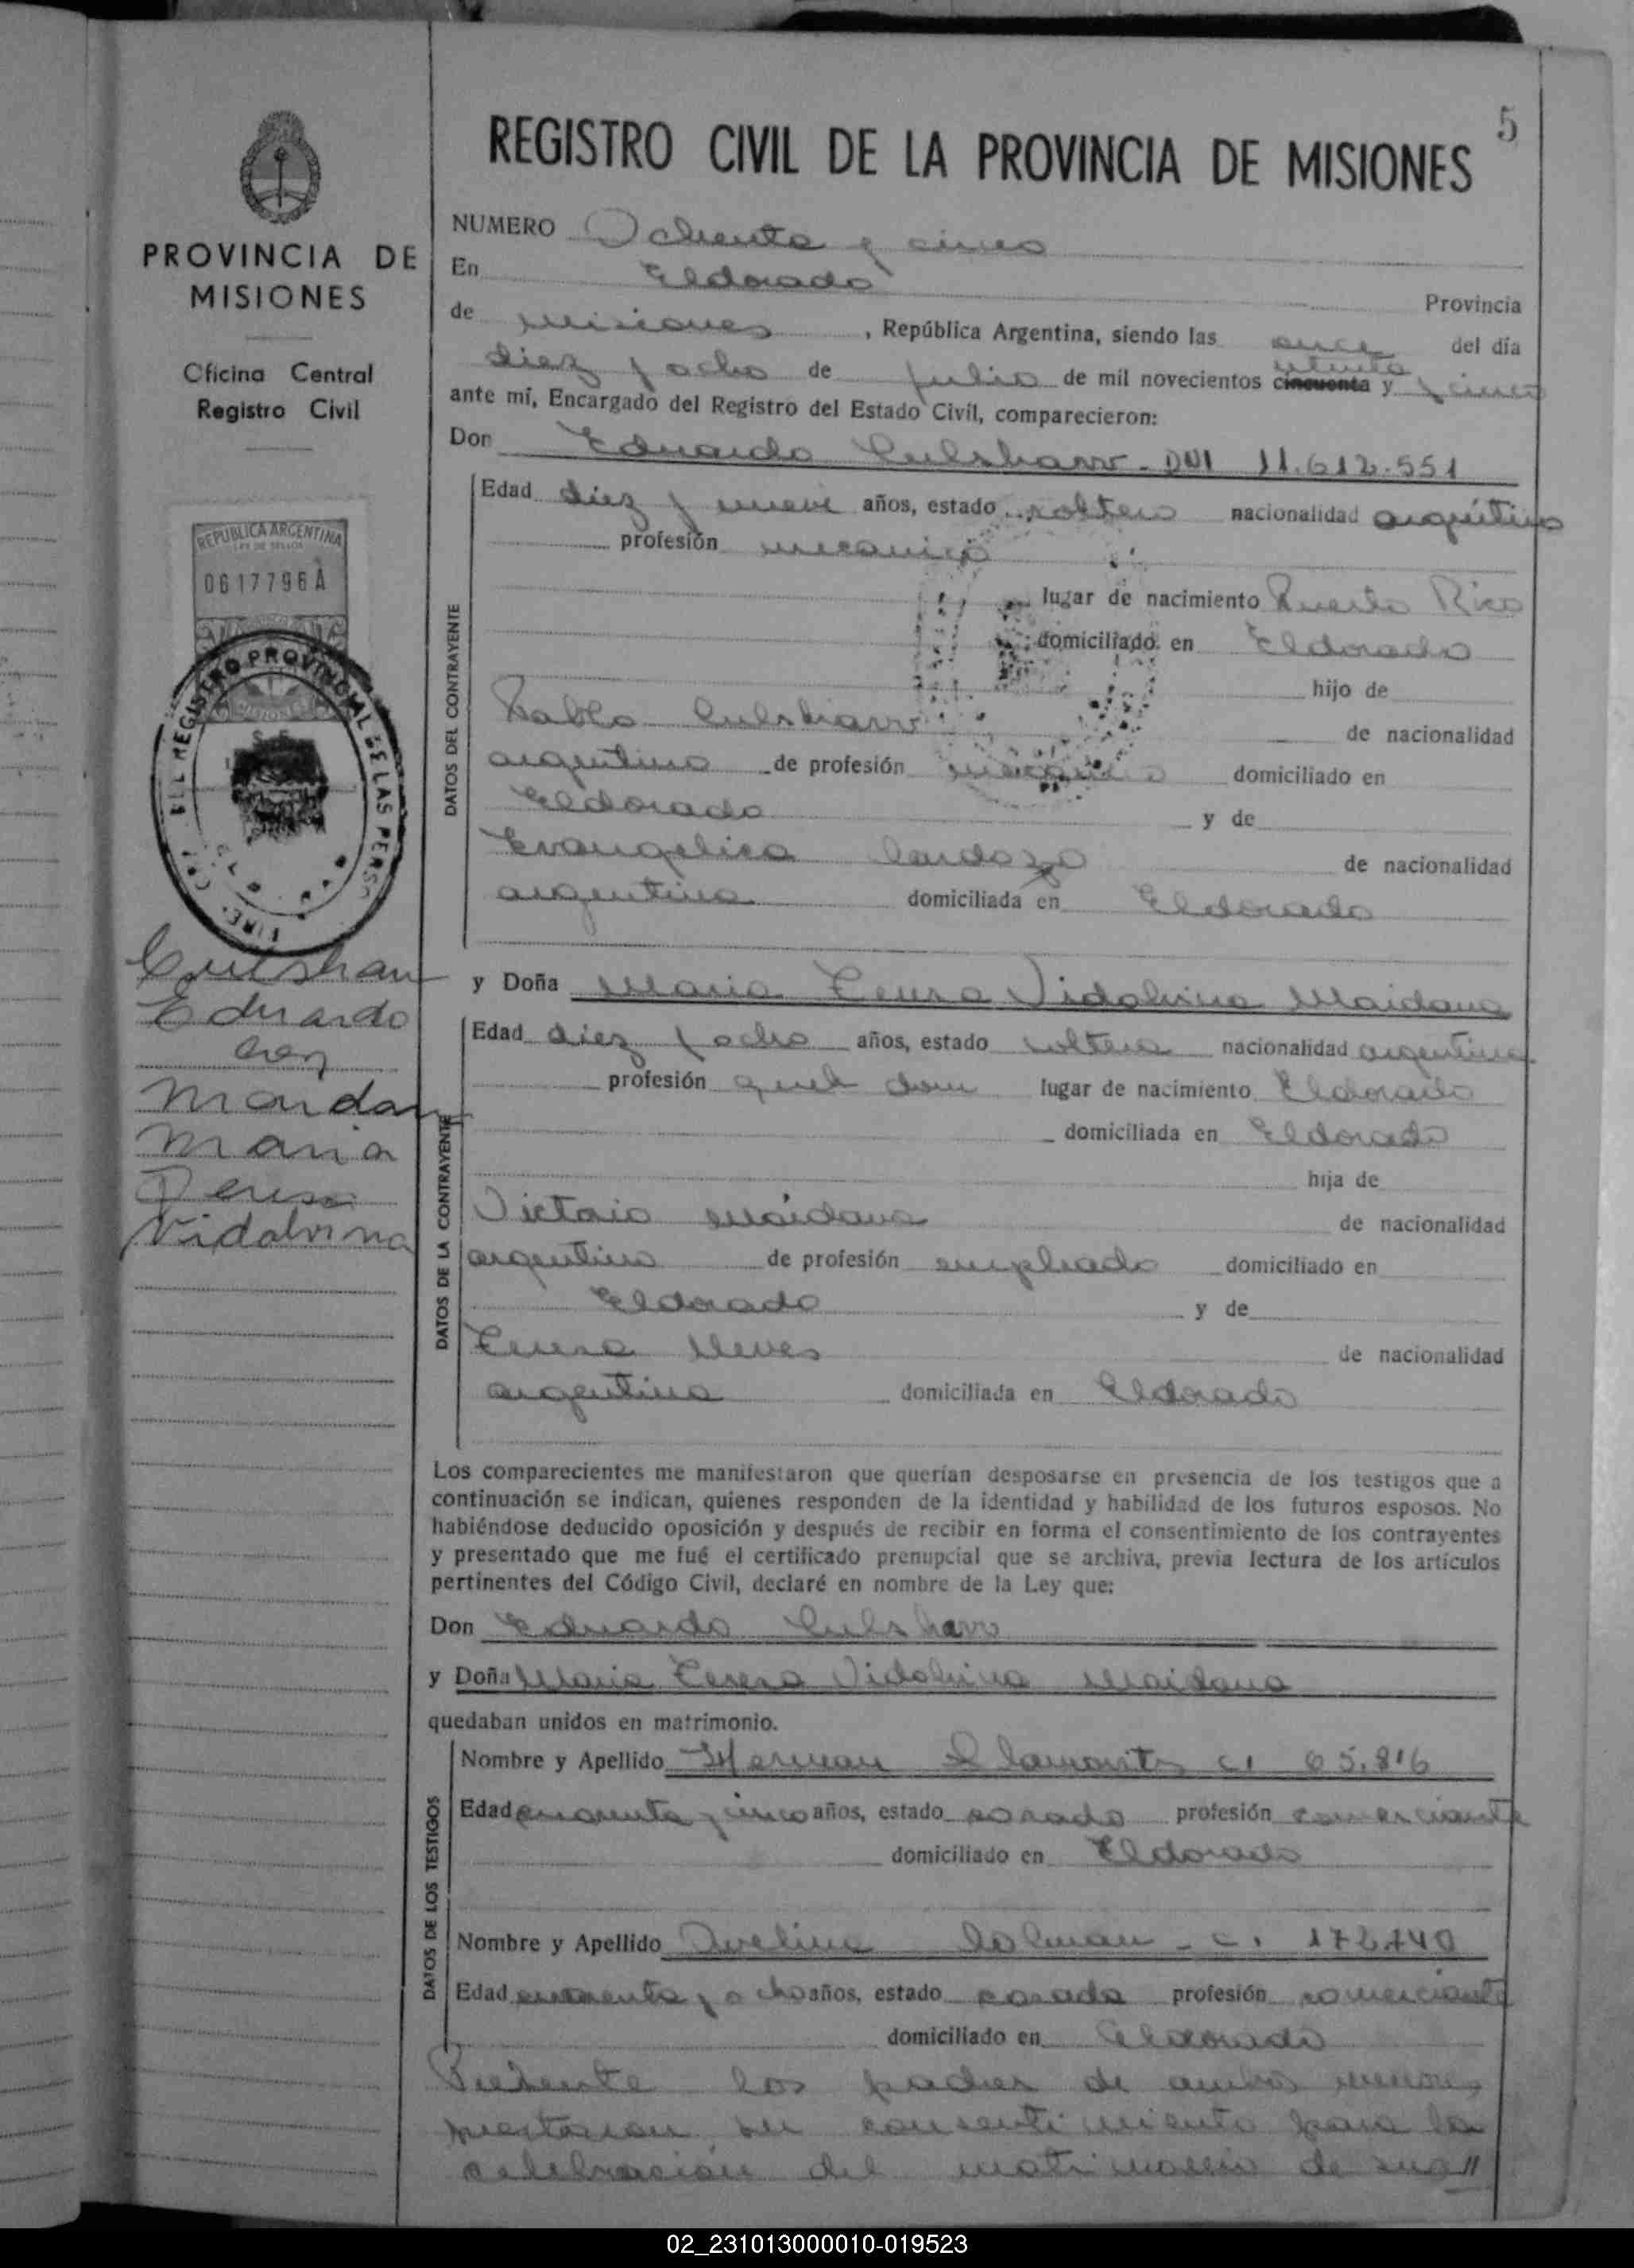 5
REGISTRO CIVIL DE LA PROVINCIA DE MISIONES
PROVINCIA DE
MISIONES
Oficina Central
Registro Civil
REPUBLICA ARGENTINA
LEY DE SELLOS
0617796A
MISIONES
REGISTRO PROVINCIAL DE LAS PERSO
Culshaw
Eduardo
con
Maidana
Maria
Teresa
Vidalvina
NUMERO Ochenta y cinco
En Eldorado Provincia
de Misiones, República Argentina, siendo las once del día
diez y ocho de julio de mil novecientos cincuenta setenta y cinco
ante mí, Encargado del Registro del Estado Civil, comparecieron:
Don Eduardo Culshaw - DNI 11.612.551
DATOS DEL CONTRAYENTE
Edad diez y nueve años, estado soltero nacionalidad argentino
profesión mecanico
lugar de nacimiento Puerto Rico
domiciliado en Eldorado
hijo de
Pablo Culshaw de nacionalidad
argentino de profesión mecanico domiciliado en
Eldorado y de
Evangelica Cardozo de nacionalidad
argentina domiciliada en Eldorado
y Doña Maria Teresa Vidalvina Maidana
DATOS DE LA CONTRAYENTE
Edad diez y ocho años, estado soltera nacionalidad argentina
profesión queh dom lugar de nacimiento Eldorado
domiciliada en Eldorado
hija de
Victorio Maidana de nacionalidad
argentino de profesión empleado domiciliado en
Eldorado y de
Teresa Neves de nacionalidad
argentina domiciliada en Eldorado
Los comparecientes me manifestaron que querían desposarse en presencia de los testigos que a
continuación se indican, quienes responden de la identidad y habilidad de los futuros esposos. No
habiéndose deducido oposición y después de recibir en forma el consentimiento de los contrayentes
y presentado que me fué el certificado prenupcial que se archiva, previa lectura de los artículos
pertinentes del Código Civil, declaré en nombre de la Ley que:
Don Eduardo Culshaw
y Doña Maria Teresa Vidalvina Maidana
quedaban unidos en matrimonio.
DATOS DE LOS TESTIGOS
Nombre y Apellido Herman CI 65.816
Edad cuarenta y cinco años, estado casado profesión comerciante
domiciliado en Eldorado
Nombre y Apellido Avelina Colman - CI
Edad cuarenta y ocho años, estado casada profesión comerciante
domiciliado en Eldorado
Presente los padres de ambos menores
prestaron su consentimiento para la
celebración del matrimonio de sus//
02_231013000010-019523